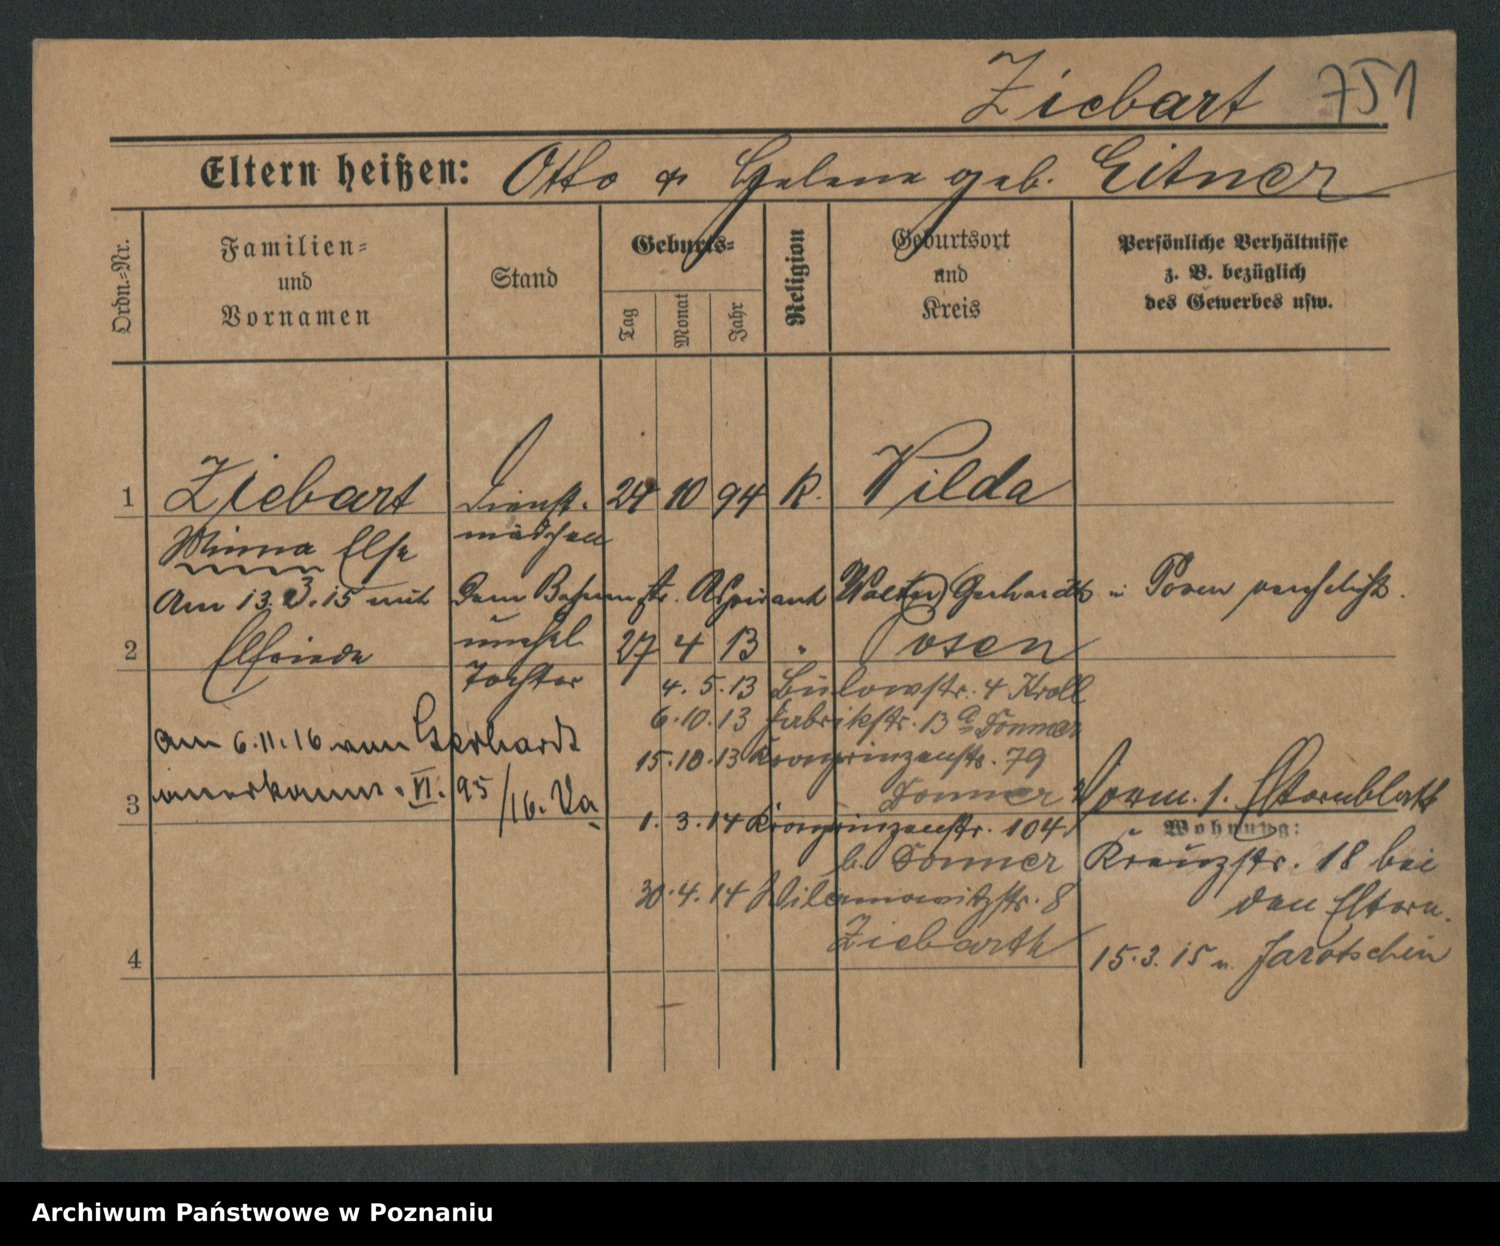 Ziebart 751
Eltern heißen: Otto & Helene geb. Eitner
Ordn.-Nr.
Familien- und Vornamen
Stand
Geburts-
Tag
Monat
Jahr
Religion
Geburtsort und Kreis
Persönliche Verhältnisse z. B. bezüglich des Gewerbes usw.
1 Ziebart Dienst- 24 10 94 K. Wilda
Minna Else mädchen
Am 13.3.15 mit dem Bahnmstr. Aspirant Walter Gerhardt i Posen verehelicht.
2 Elfriede unehel 27 4 13 " Posen
Tochter
4.5.13 Bülowstr. 4 Kroll
6.10.13 Fabrikstr. 13 a Donner
15.10.13 Kronprinzenstr. 79
Donner
am 6.11.16 vom Gerhardt
anerkannt. VI. 95/16. Va
3
1.3.14 Kronprinzenstr. 104
b. Donner
30.4.14 Wilamowitzstr. 8
Ziebarth
4
Vorm. s. Elternblatt
Wohnung:
Kreuzstr. 18 bei
den Eltern.
15.3.15 n. Jarotschin
Archiwum Państwowe w Poznaniu